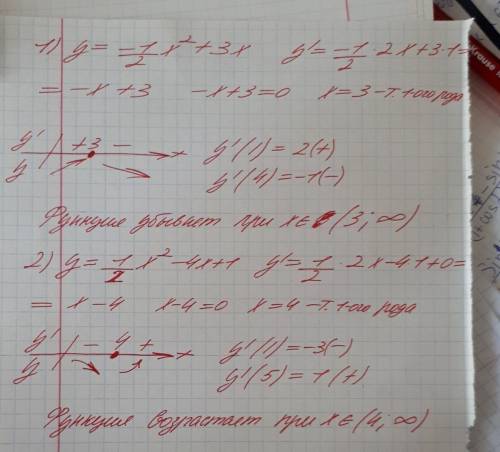 1) y = -1/2 x² + 3x y' = -1/2 · 2x + 3 · 1 =
= -x + 3 -x + 3 = 0 x = 3 - т. 1-ого рода
y' + 3 - x y'(1) = 2(+)
y y'(4) = -1(-)
Функция убывает при x ∈ (3; ∞)
2) y = 1/2 x² - 4x + 1 y' = 1/2 · 2x - 4·1 + 0 =
= x - 4 x - 4 = 0 x = 4 - т. 1-ого рода
y' - 4 + x y'(1) = -3(-)
y y'(5) = 1(+)
Функция возрастает при x ∈ (4; ∞)
Krause